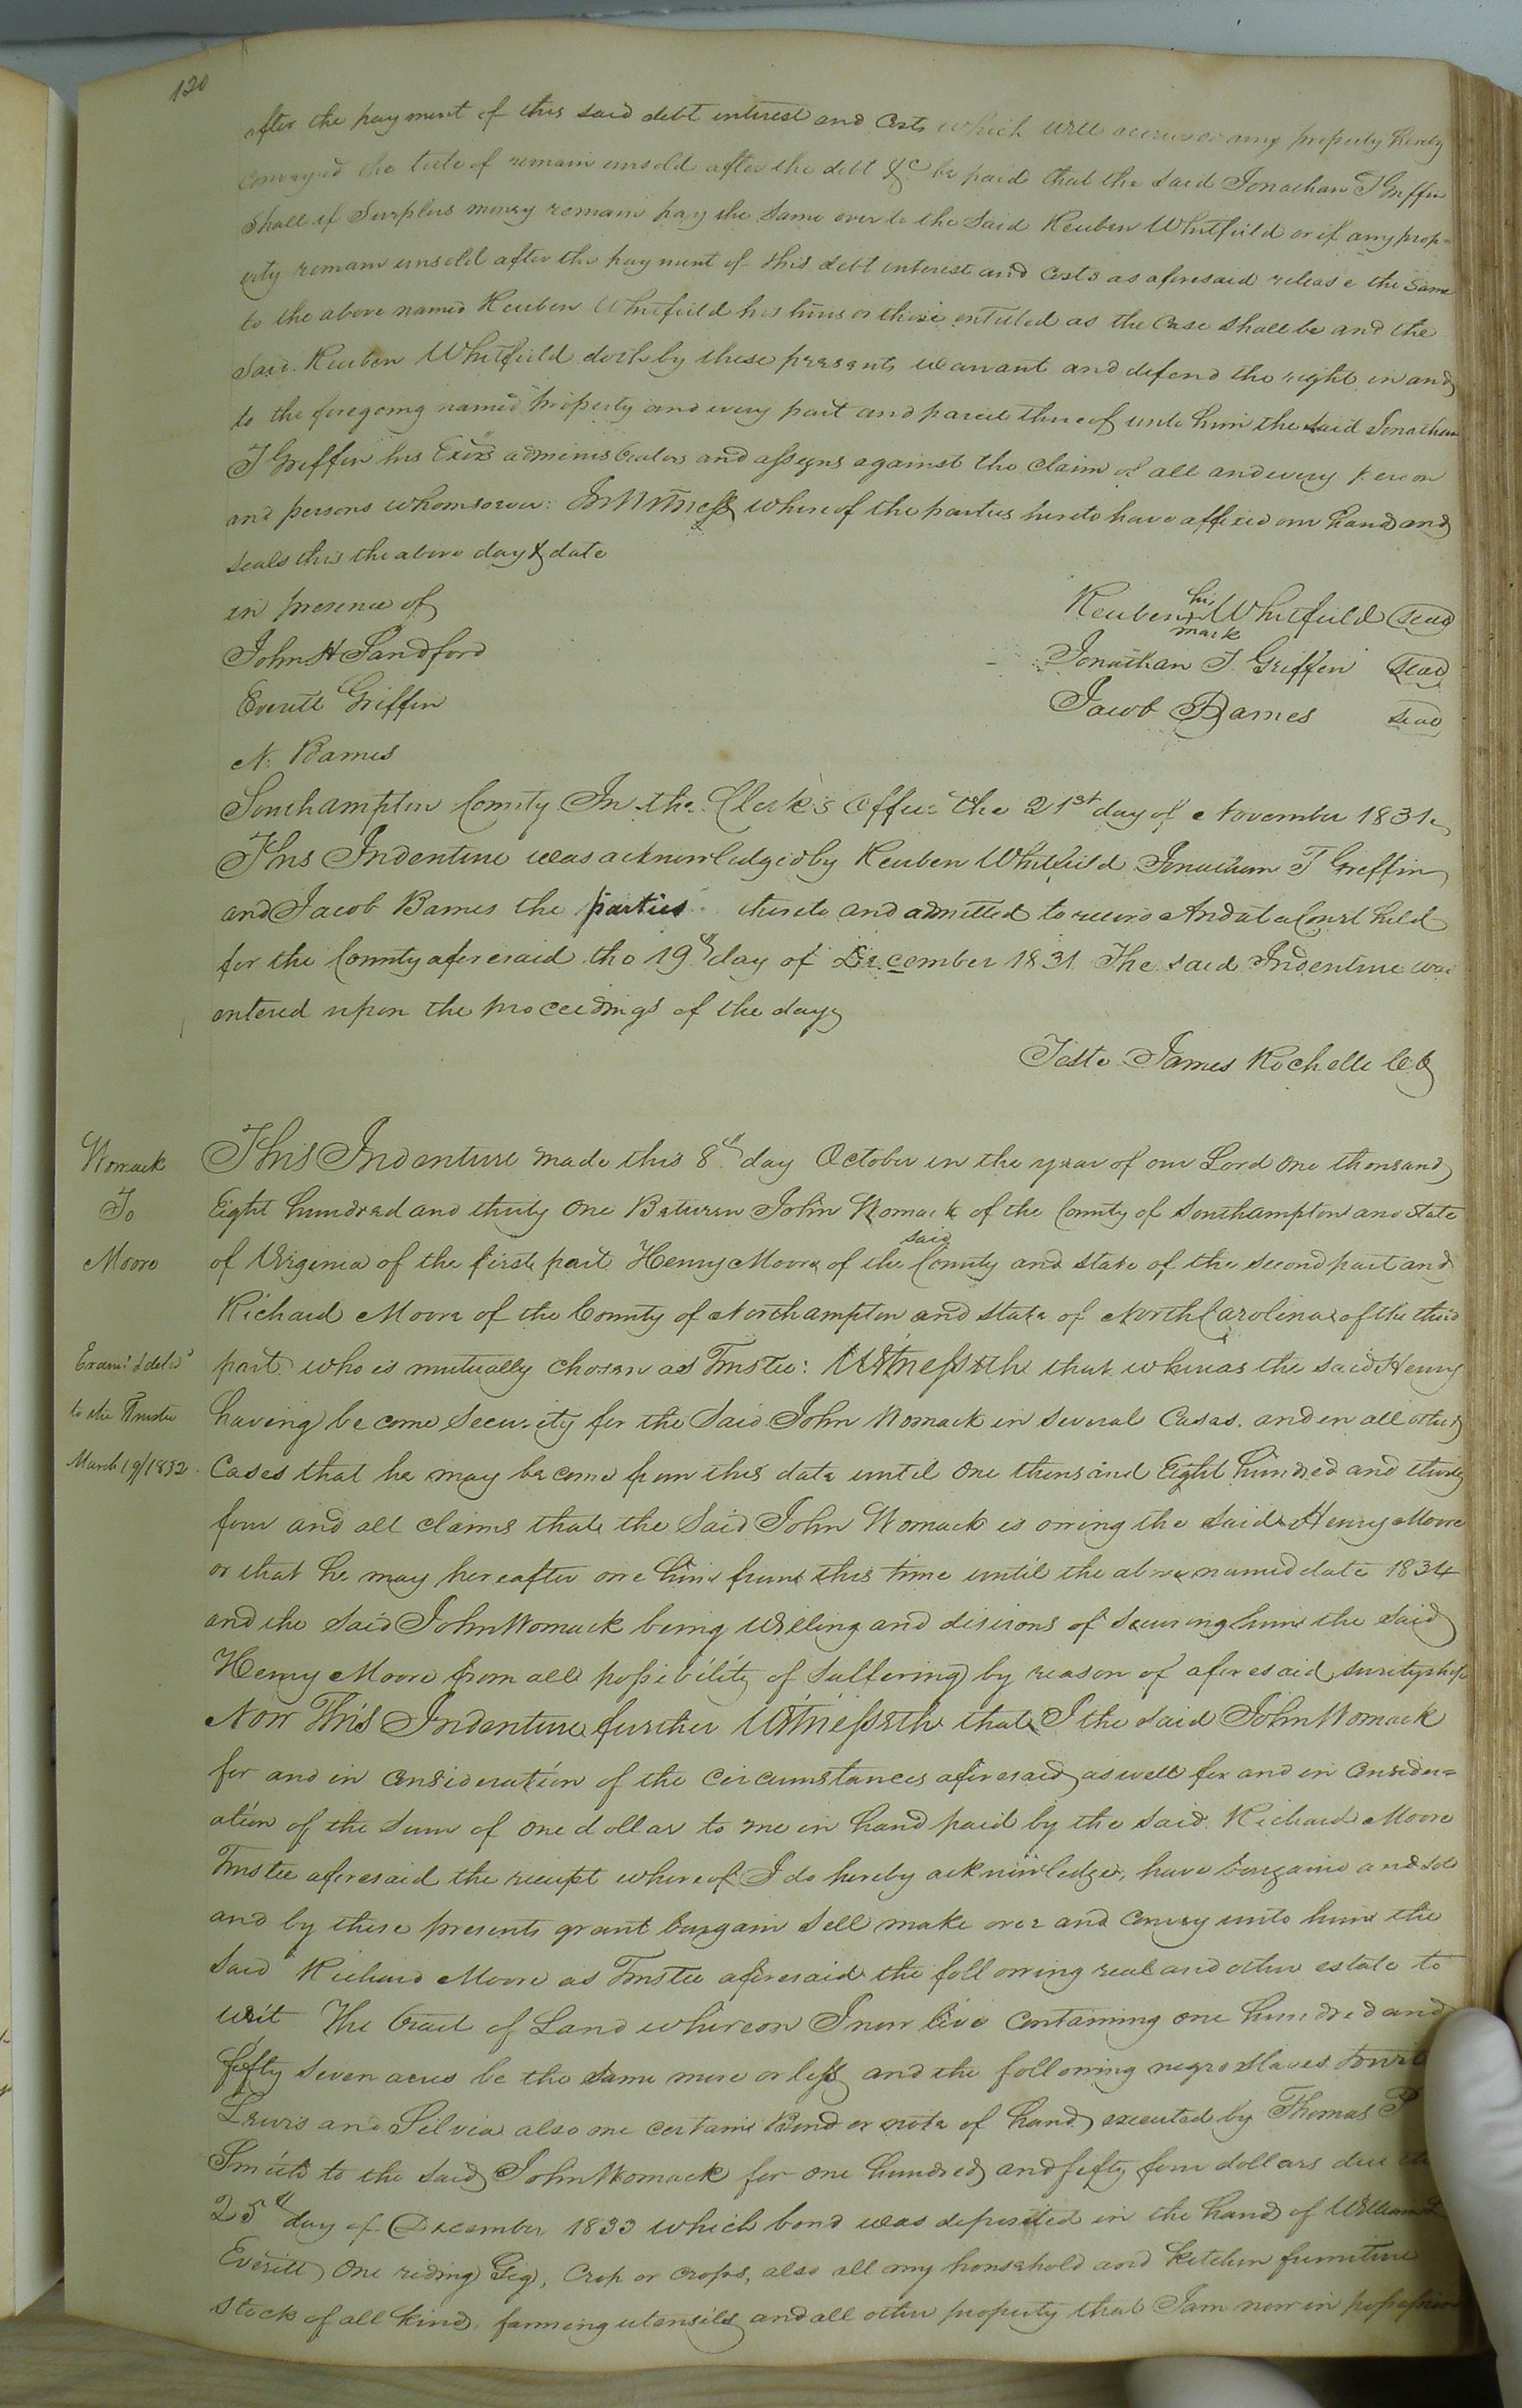 120
after the payment of this said debt interest and Costs which will accrue or any property hereby
conveyed the title of remain unsold after the debt &c be paid that the said Jonathan T Griffin
shall if Surplus money remain pay the same over to the said Reuben Whitfield or if any prop=
erty remain unsold after the payment of this debt interest and Costs as aforesaid release the same
to the above named Reuben Whitfield his heirs or those entitled as the Case shall be and the
said Reuben Whitfield doth by these presents warrant and defend the right in and
to the foregoing named property and every part and parcel thereof unto him the said Jonathan
T Griffin his Exors administrators and assigns against the claim of all and every person
and persons whomsoever: In Witness whereof the parties hereto have affixed our hands and
seals this the above day & date
in presence of
Reuben his mark Whitfield seal
John H Sandford
Jonathan T. Griffin seal
Everitt Griffin
Jacob Barnes seal
N. Barnes
Southampton County In the Clerk's Office the 21st day of November 1831.
This Indenture was acknowledged by Reuben Whitfield Jonathan T Griffin
and Jacob Barnes the parties thereto and admitted to record And at a Court held
for the County aforesaid the 19th day of December 1831 The said Indenture was
entered upon the proceedings of the day
Teste James Rochelle CC
Womack
To
Moore
Examd & delivd
to the Trustee
March 19/1832.
This Indenture made this 8th day October in the year of our Lord one thousand
Eight hundred and thirty One Between John Womack of the County of Southampton and State
of Virginia of the first part Henry Moore of the said County and state of the second part and
Richard Moore of the County of Northampton and state of North Carolina of the third
part who is mutually chosen as Trustee: Witnesseth that whereas the said Henry
having become Security for the Said John Womack in several Cases. and in all other
Cases that he may become from this date until One thousand Eight hundred and thirty
four and all claims that the Said John Womack is owing the said Henry Moore
or that he may hereafter owe him from this time until the above named date 1834
and the said John Womack being willing and desirous of securing him the said
Henry Moore from all possibility of suffering by reason of aforesaid suretyship
Now This Indenture further Witnesseth that I the said John Womack
for and in consideration of the circumstances aforesaid as well for and in consider=
ation of the sum of one dollar to me in hand paid by the said Richard Moore
Trustee aforesaid the receipt whereof I do hereby acknowledge, have bargaind and sold
and by these presents grant bargain sell make over and convey unto him the
said Richard Moore as Trustee aforesaid the following real and other estate to
wit The tract of Land whereon I now live containing one hundred and
fifty seven acres be the same more or less and the following negro slaves towit
Lewis and Silvia also one certain Bond or note of hand executed by Thomas P
Smith to the said John Womack for one hundred and fifty four dollars due the
25th day of December 1833 which bond was deposited in the hand of William
Everitt, One riding Gig, Crop or crops, also all my household and kitchen furniture
stock of all kind, farming utensils and all other property that I am now in possession